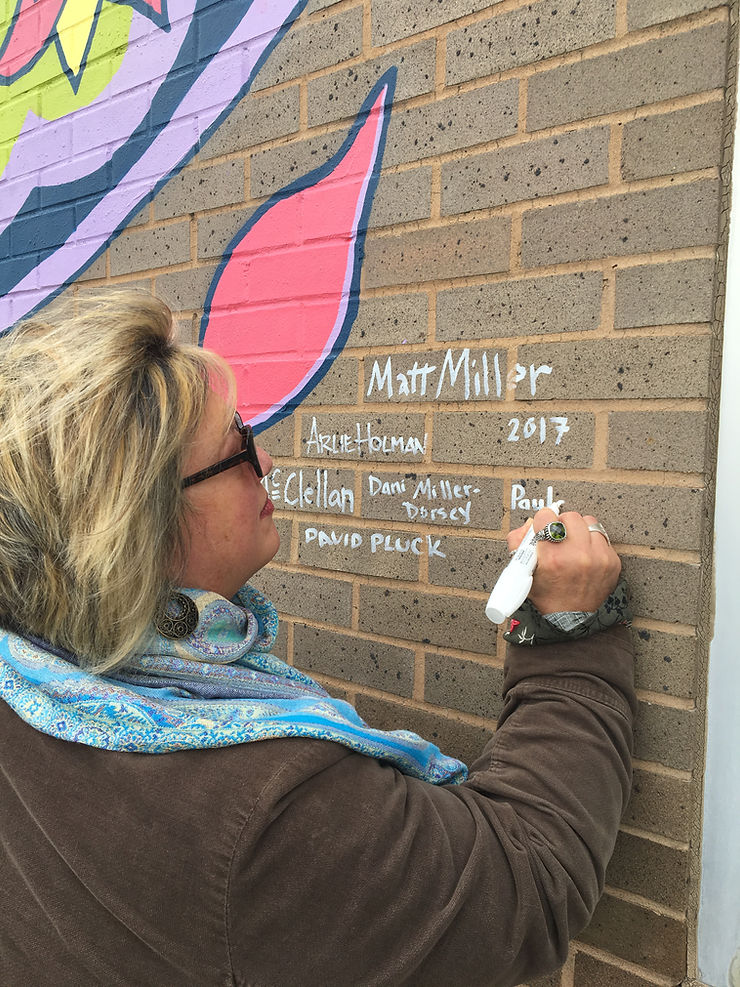 Matt Miller
2017
ARLIE HOLMAN
Clellan
Dani Miller-
Dorsey
DAVID PLUCK